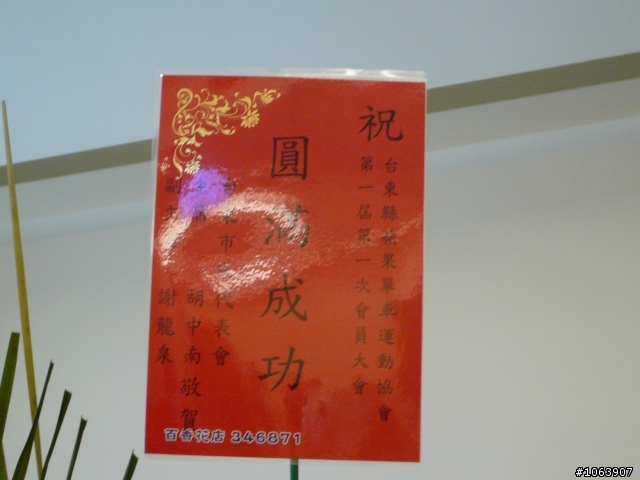 祝
台東縣蘋果單車運動協會
第一屆第一次會員大會
圓滿成功
市 代表會
主席 胡中南 敬賀
副主 謝龍泉
百香花店 346871
#1063907